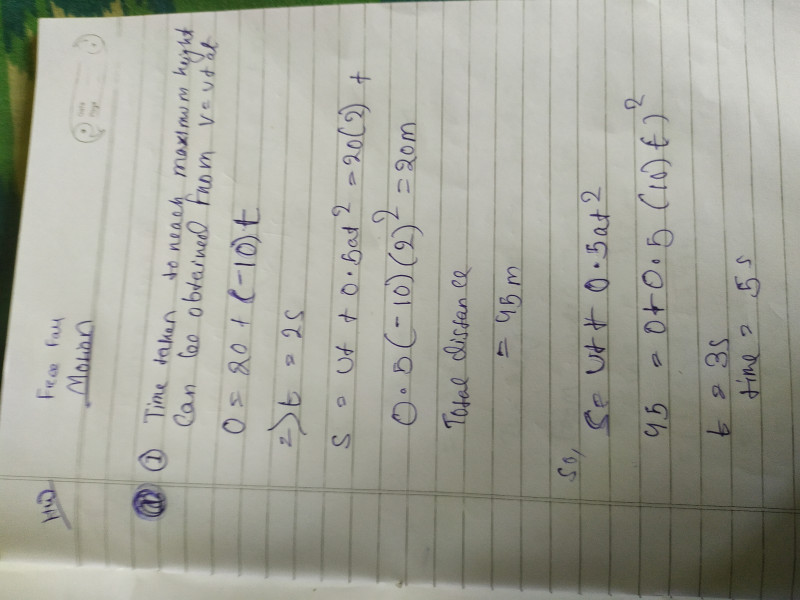 HW
Free Fall
Motion
① Time taken to reach maximum height
can be obtained from v=u+at
0 = 20 + (-10)t
=> t = 2s
s = ut + 0.5at² = 20(2) +
0.5(-10)(2)² = 20m
Total distance
= 45m
So,
s = ut + 0.5at²
45 = 0+0.5(10)(t)²
t = 3s
time = 5s